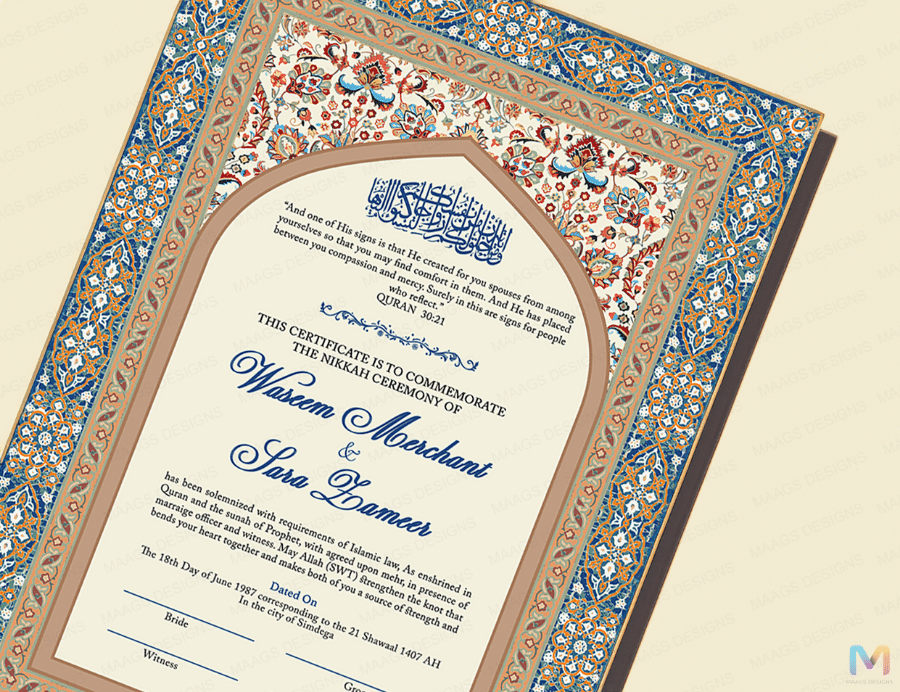 "And one of His signs is that He created for you spouses from among
yourselves so that you may find comfort in them. And He has placed
between you compassion and mercy. Surely in this are signs for people
who reflect."
QURAN 30:21
THIS CERTIFICATE IS TO COMMEMORATE
THE NIKKAH CEREMONY OF
Waseem Merchant
&
Sara Zameer
has been solemnized with requirements of Islamic law, As enshrined in
Quran and the sunah of Prophet, with agreed upon mehr, in presence of
marraige officer and witness. May Allah (SWT) strengthen the knot that
bends your heart together and makes both of you a source of strength and
Dated On
The 18th Day of June 1987 corresponding to the 21 Shawaal 1407 AH
In the city of Simdega
Bride
Witness
Gro
MAAGS DESIGNS